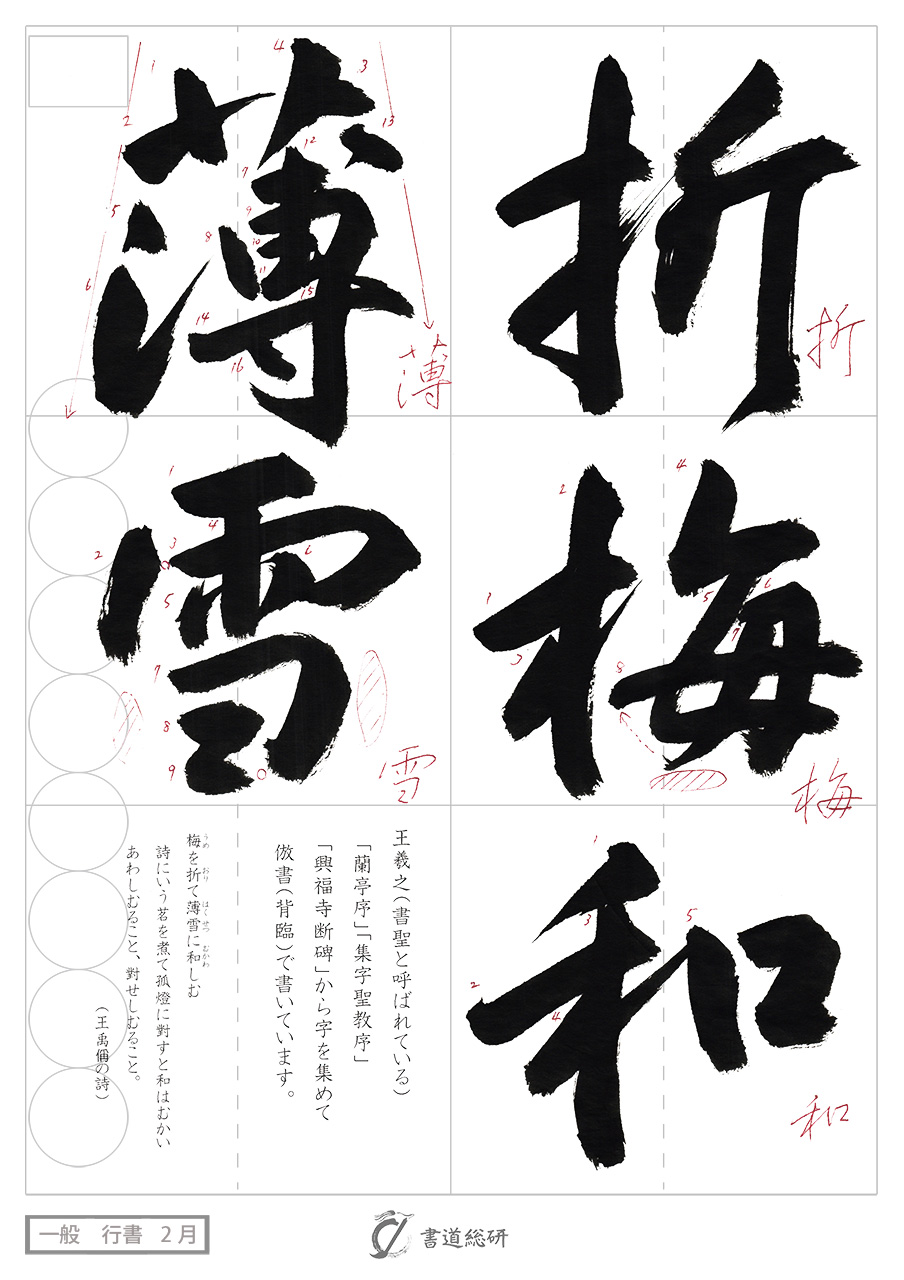 折梅和
薄雪
折
梅
和
薄
雪
王羲之(書聖と呼ばれている)
「蘭亭序」「集字聖教序」
「興福寺断碑」から字を集めて
倣書(背臨)で書いています。
梅を折て薄雪に和しむ
うめ おり はくせつ むかわ
詩にいう茗を煮て孤燈に對すと和はむかい
あわしむること、對せしむること。
(王禹偁の詩)
一般 行書 2月
書道総研